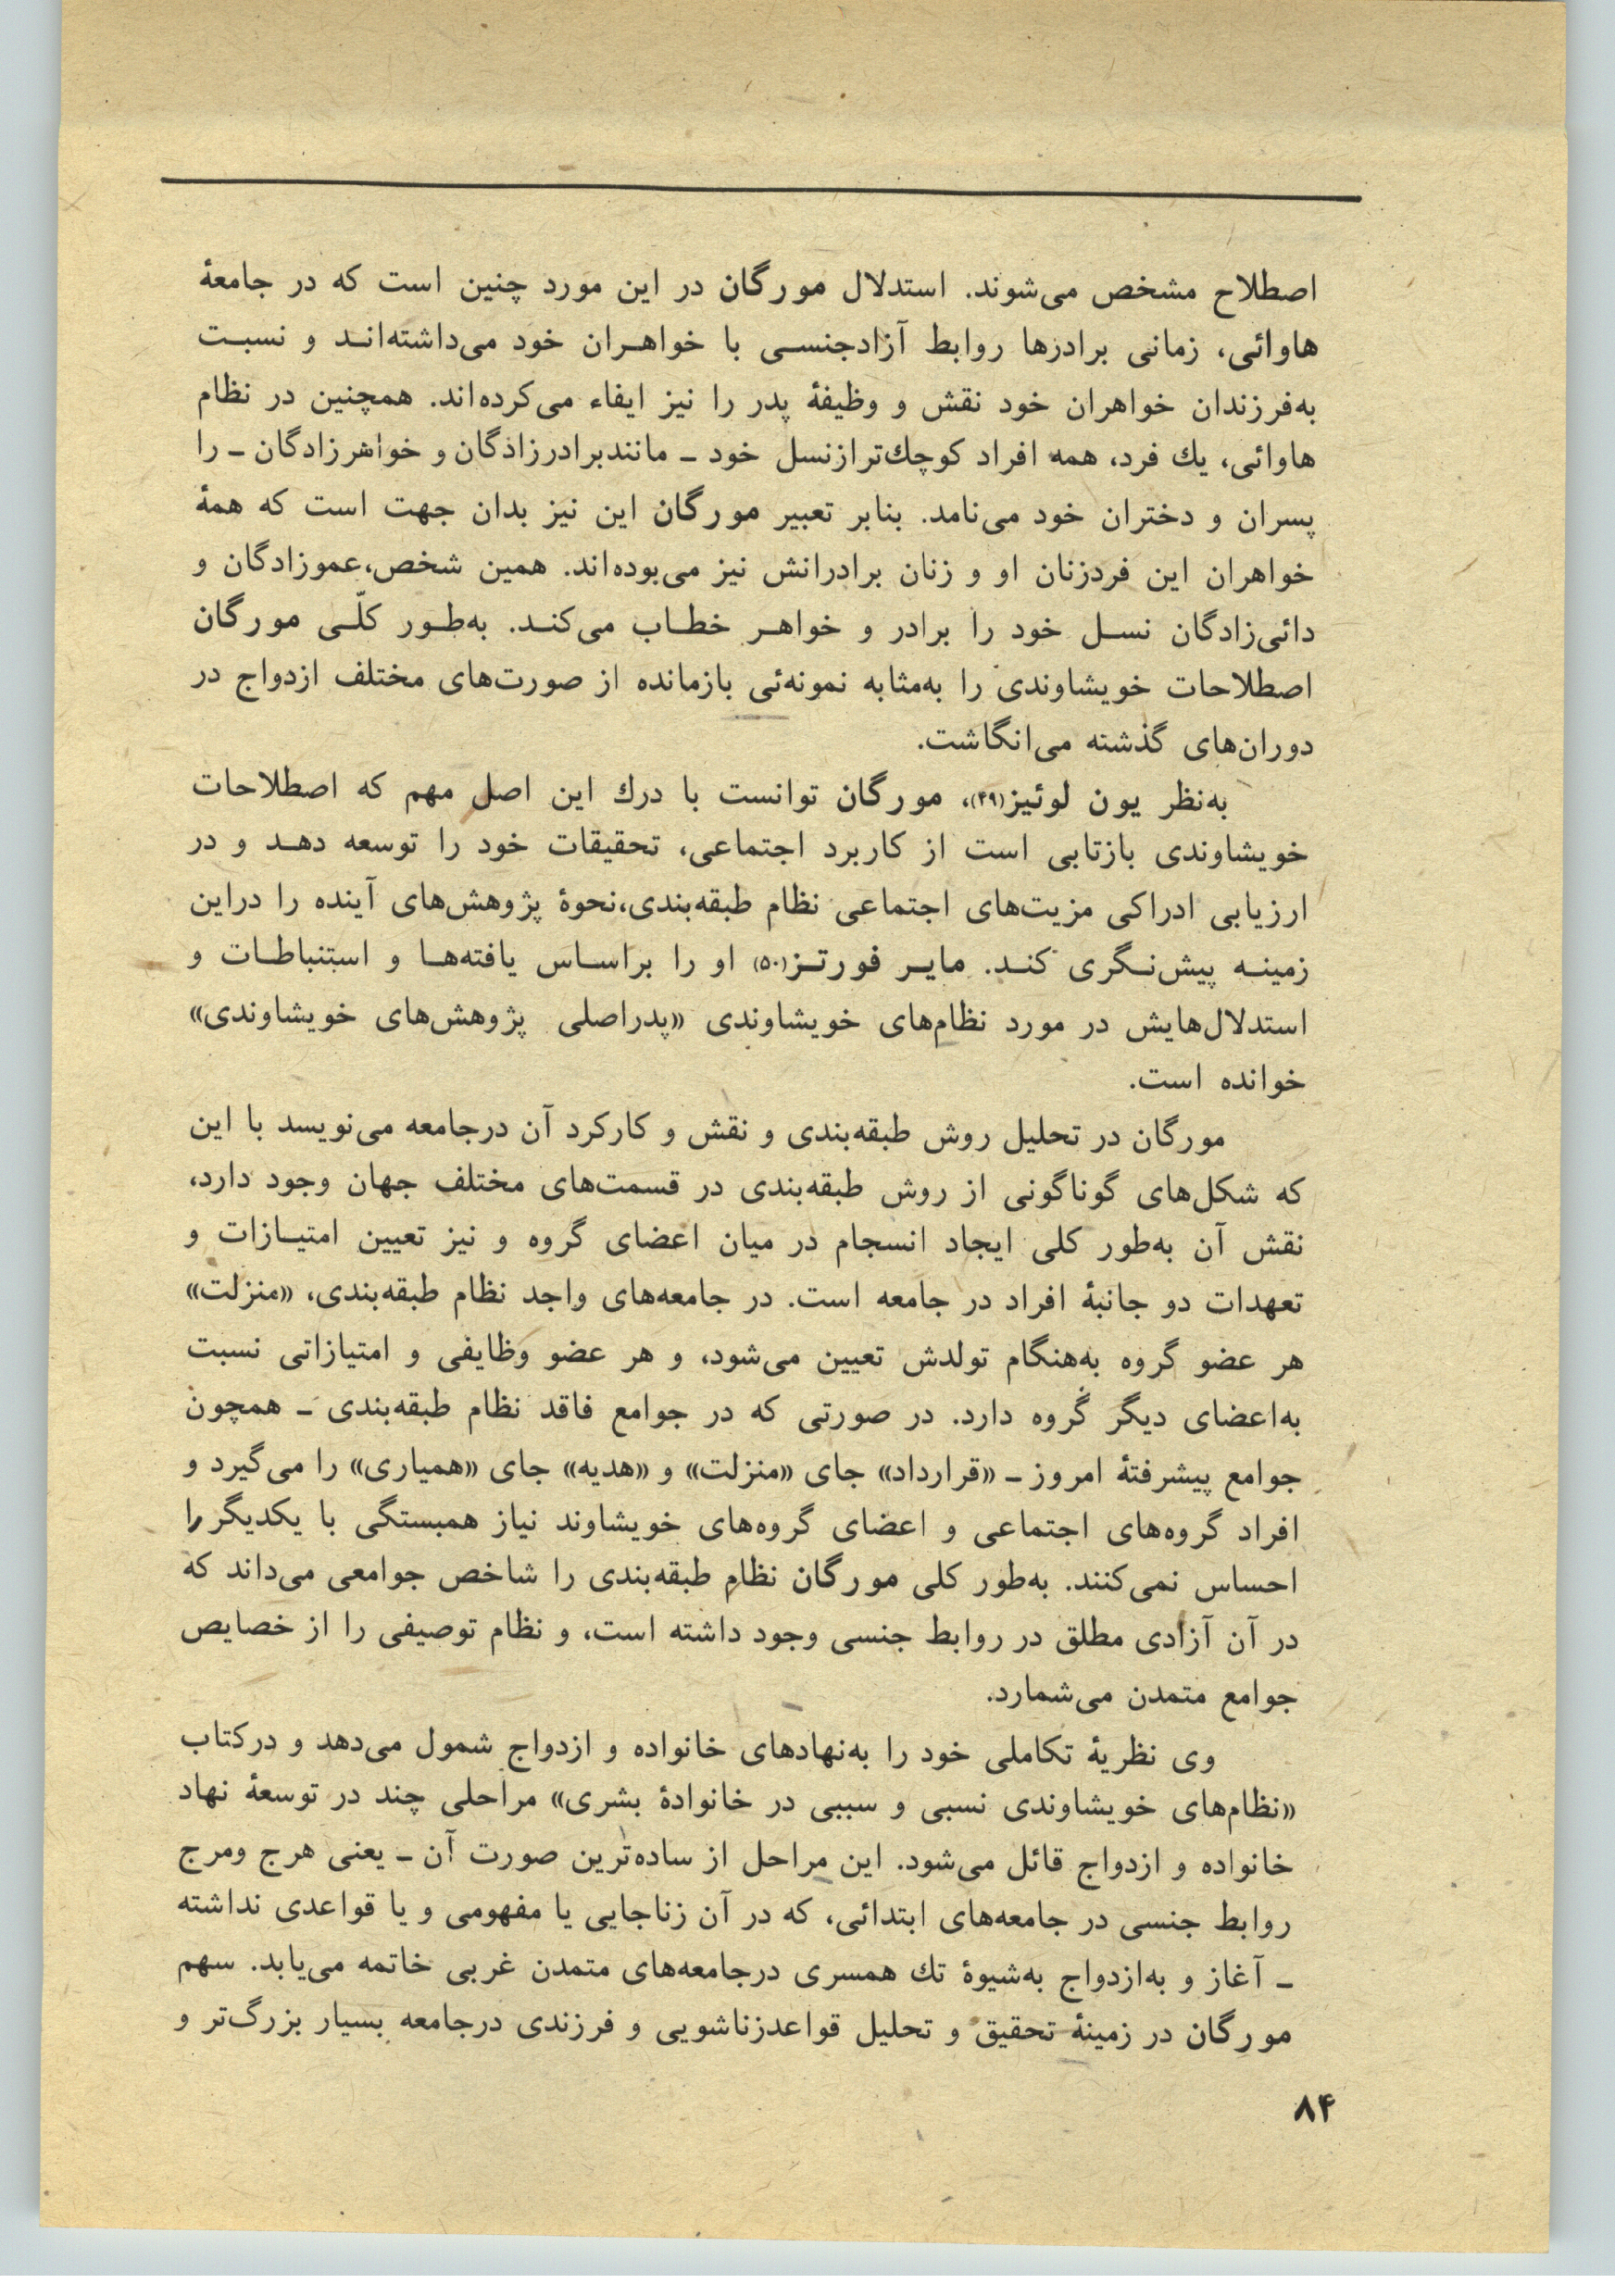 اصطلاح مشخص می‌شوند. استدلال مورگان در این مورد چنین است که در جامعهٔ
هاوائی، زمانی برادرها روابط آزادجنسی با خواهران خود می‌داشته‌اند و نسبت
به‌فرزندان خواهران خود نقش و وظیفهٔ پدر را نیز ایفاء می‌کرده‌اند. همچنین در نظام
هاوائی، یك فرد، همه افراد کوچك‌ترازنسل خود ـ مانندبرادرزادگان و خواهرزادگان ـ را
پسران و دختران خود می‌نامد. بنابر تعبیر مورگان این نیز بدان جهت است که همهٔ
خواهران این فردزنان او و زنان برادرانش نیز می‌بوده‌اند. همین شخص،عموزادگان و
دائی‌زادگان نسل خود را برادر و خواهر خطاب می‌کند. به‌طور کلّی مورگان
اصطلاحات خویشاوندی را به‌مثابه نمونه‌ئی بازمانده از صورت‌های مختلف ازدواج در
دوران‌های گذشته می‌انگاشت.
به‌نظر یون لوئیز(۴۹)، مورگان توانست با درك این اصل مهم که اصطلاحات
خویشاوندی بازتابی است از کاربرد اجتماعی، تحقیقات خود را توسعه دهد و در
ارزیابی ادراکی مزیت‌های اجتماعی نظام طبقه‌بندی،نحوهٔ پژوهش‌های آینده را دراین
زمینه پیش‌نگری کند. مایر فورتز(۵۰) او را براساس یافته‌ها و استنباطات و
استدلال‌هایش در مورد نظام‌های خویشاوندی «پدراصلی پژوهش‌های خویشاوندی»
خوانده است.
مورگان در تحلیل روش طبقه‌بندی و نقش و کارکرد آن درجامعه می‌نویسد با این
که شکل‌های گوناگونی از روش طبقه‌بندی در قسمت‌های مختلف جهان وجود دارد،
نقش آن به‌طور کلی ایجاد انسجام در میان اعضای گروه و نیز تعیین امتیازات و
تعهدات دو جانبهٔ افراد در جامعه است. در جامعه‌های واجد نظام طبقه‌بندی، «منزلت»
هر عضو گروه به‌هنگام تولدش تعیین می‌شود، و هر عضو وظایفی و امتیازاتی نسبت
به‌اعضای دیگر گروه دارد. در صورتی که در جوامع فاقد نظام طبقه‌بندی ـ همچون
جوامع پیشرفتهٔ امروز ـ «قرارداد» جای «منزلت» و «هدیه» جای «همیاری» را می‌گیرد و
افراد گروه‌های اجتماعی و اعضای گروه‌های خویشاوند نیاز همبستگی با یکدیگر را
احساس نمی‌کنند. به‌طور کلی مورگان نظام طبقه‌بندی را شاخص جوامعی می‌داند که
در آن آزادی مطلق در روابط جنسی وجود داشته است، و نظام توصیفی را از خصایص
جوامع متمدن می‌شمارد.
وی نظریهٔ تکاملی خود را به‌نهادهای خانواده و ازدواج شمول می‌دهد و درکتاب
«نظام‌های خویشاوندی نسبی و سببی در خانوادهٔ بشری» مراحلی چند در توسعهٔ نهاد
خانواده و ازدواج قائل می‌شود. این مراحل از ساده‌ترین صورت آن ـ یعنی هرج ومرج
روابط جنسی در جامعه‌های ابتدائی، که در آن زناجایی یا مفهومی و یا قواعدی نداشته
ـ آغاز و به‌ازدواج به‌شیوهٔ تك همسری درجامعه‌های متمدن غربی خاتمه می‌یابد. سهم
مورگان در زمینهٔ تحقیق و تحلیل قواعدزناشویی و فرزندی درجامعه بسیار بزرگ‌تر و
۸۴